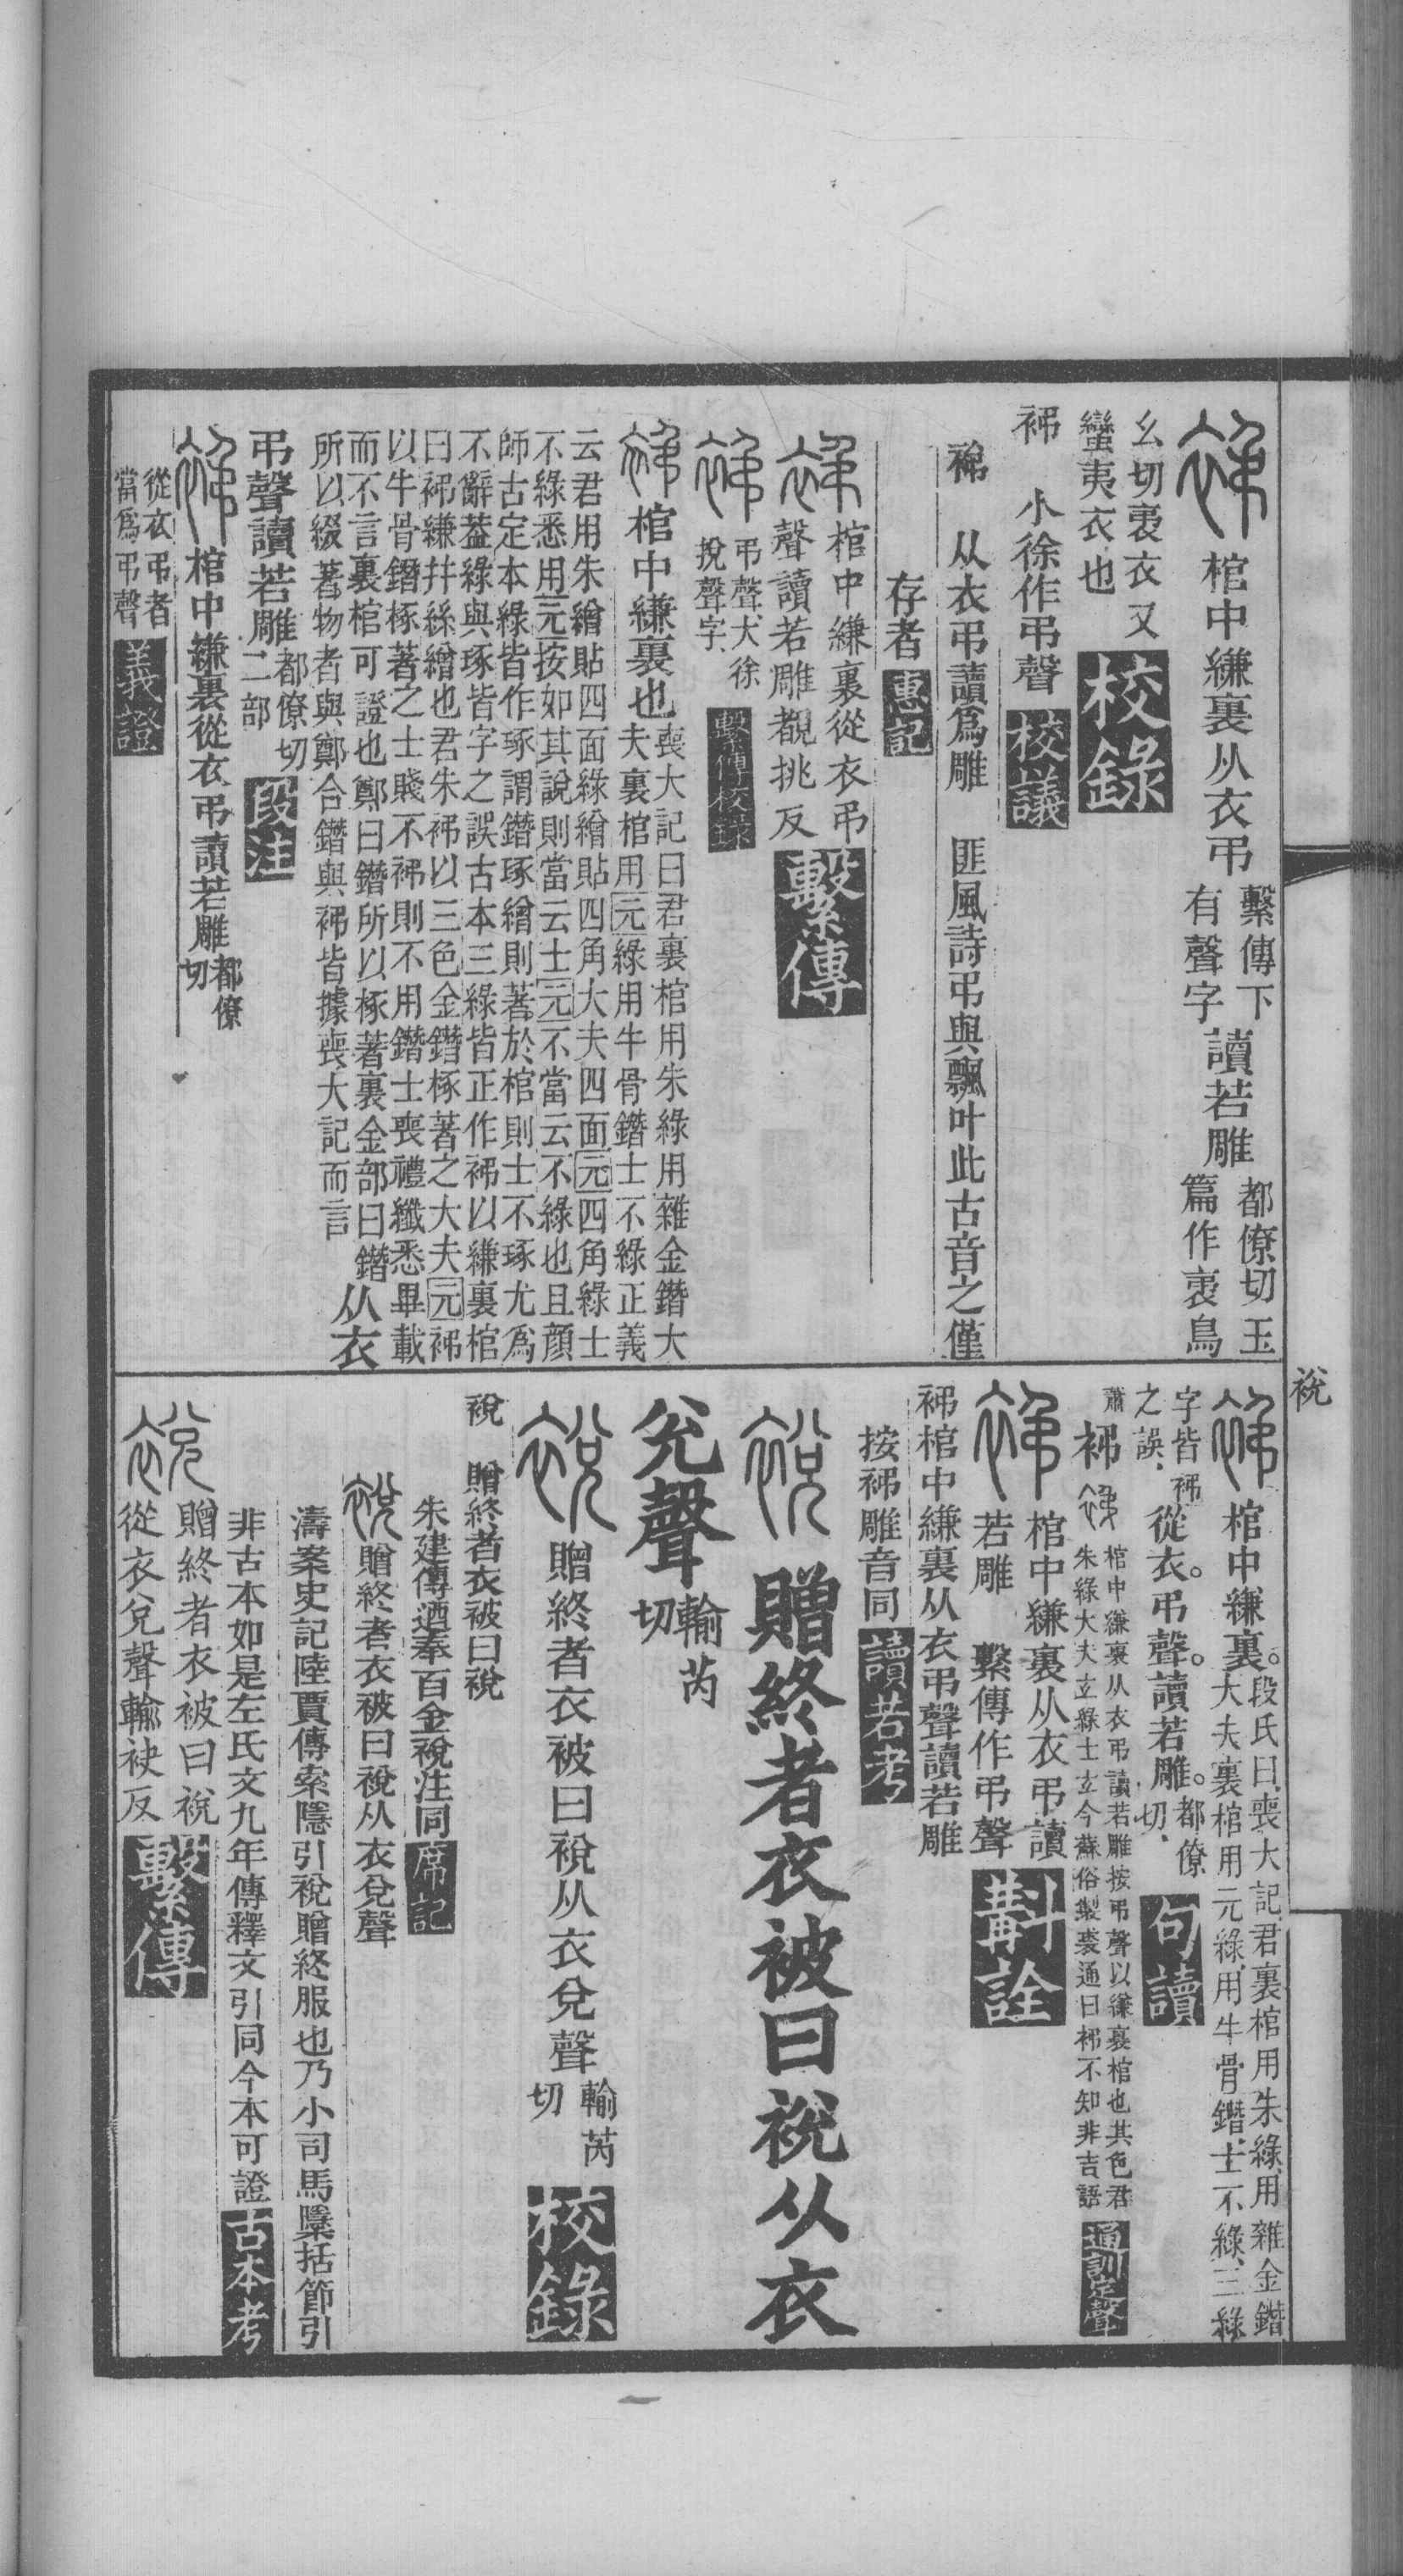 棺中縑裏从衣弔
繫傳下
有聲字
讀若雕
都僚切玉
篇作裊鳥
幺切裊衣又
蠻夷衣也
校錄
祶 小徐作弔聲
校議
从衣弔讀爲雕 匪風詩弔與飄叶此古音之僅
存者
惠記
棺中縑裏從衣弔
聲讀若雕覩挑反
繫傳
弔聲大徐
挩聲字
繫傳校錄
棺中縑裏也
喪大記曰君裏棺用朱綠用雜金鐕大
夫裏棺用元綠用牛骨鐕士不綠正義
云君用朱繒貼四面綠繒貼四角大夫四面元四角綠士
不綠悉用元按如其說則當云士元不當云不綠也且顏
師古定本綠皆作琢謂鐕琢繒則著於棺則士不琢尤爲
不辭葢綠與琢皆字之誤古本三綠皆正作祶以縑裏棺
曰祶縑幷絲繒也君朱祶以三色金鐕椓著之大夫元祶
以牛骨鐕椓著之士賤不祶則不用鐕士喪禮纖悉畢載
而不言裏棺可證也鄭曰鐕所以椓著裏金部曰鐕
所以綴著物者與鄭合鐕與祶皆據喪大記而言
从衣
弔聲讀若雕
都僚切
二部
段注
棺中縑裏從衣弔讀若雕
都僚
切
從衣弔者
當爲弔聲
義證
裞
棺中縑裏
段氏曰喪大記君裏棺用朱綠用雜金鐕
大夫裏棺用元綠用牛骨鐕士不綠三綠
字皆祶
之誤
從衣弔聲讀若雕
都僚
切
句讀
蕭
祶
棺中縑裏从衣弔讀若雕按弔聲以縑裏棺也其色君
朱綠大夫玄綠士玄今蘇俗製裘通曰祶不知非吉語
通訓定聲
棺中縑裏从衣弔讀
若雕 繫傳作弔聲
斠詮
祶棺中縑裏从衣弔聲讀若雕
按祶雕音同
讀若考
贈終者衣被曰裞从衣
兊聲
輸芮
切
贈終者衣被曰裞从衣兌聲
輸芮
切
校錄
裞 贈終者衣被曰裞
朱建傳迺奉百金裞注同
席記
贈終者衣被曰裞从衣兌聲
濤案史記陸賈傳索隱引裞贈終服也乃小司馬櫽括節引
非古本如是左氏文九年傳釋文引同今本可證
古本考
贈終者衣被曰裞
從衣兌聲輸袂反
繫傳